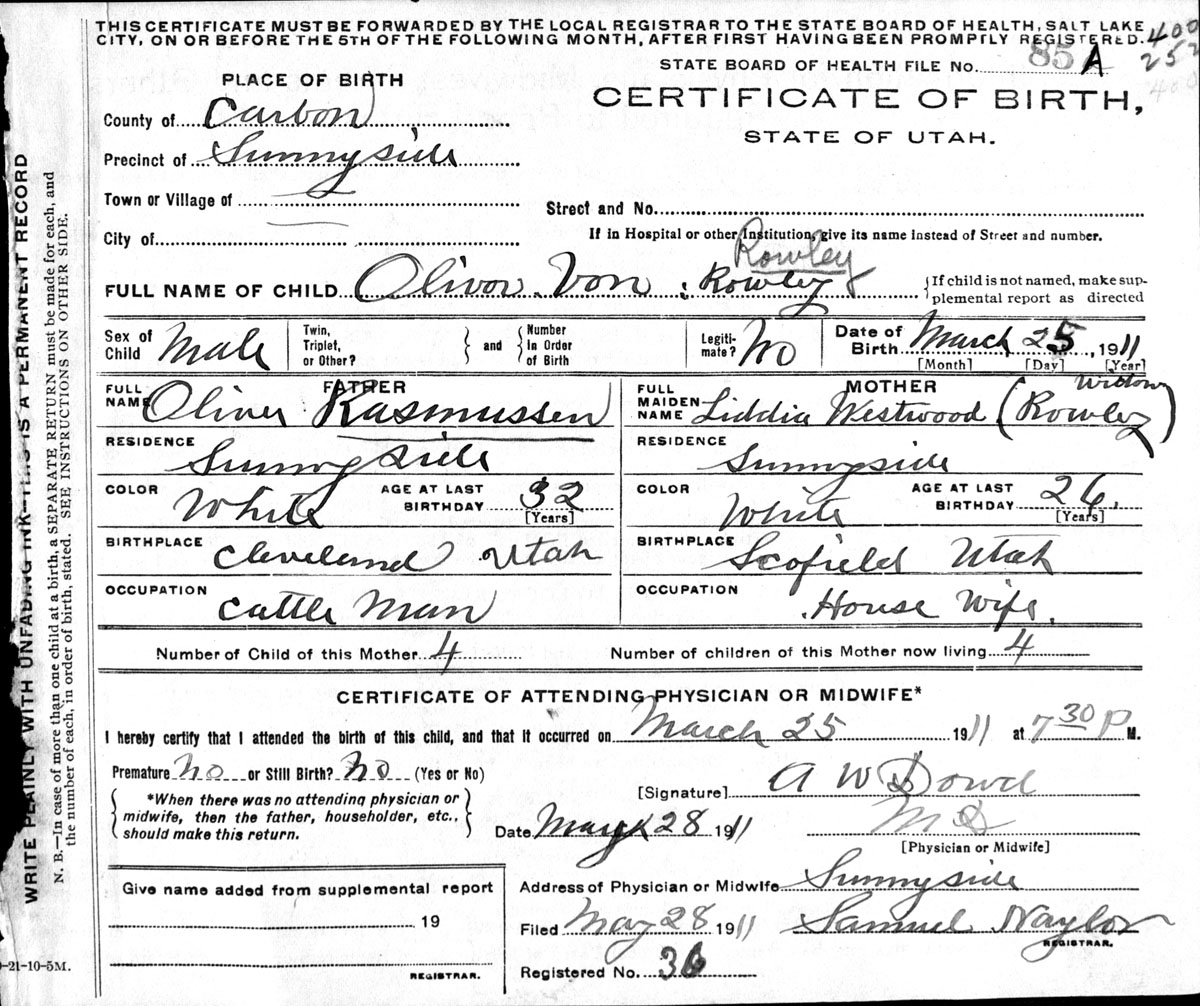 THIS CERTIFICATE MUST BE FORWARDED BY THE LOCAL REGISTRAR TO THE STATE BOARD OF HEALTH, SALT LAKE
CITY, ON OR BEFORE THE 5TH OF THE FOLLOWING MONTH, AFTER FIRST HAVING BEEN PROMPTLY REGISTERED.
400
252
400
STATE BOARD OF HEALTH FILE No. 85 A
PLACE OF BIRTH
CERTIFICATE OF BIRTH,
STATE OF UTAH.
County of Carbon
Precinct of Sunnyside
Town or Village of
Street and No.
City of
If in Hospital or other Institution, give its name instead of Street and number.
Rowley
FULL NAME OF CHILD Olivor Von Rowley
{If child is not named, make sup-
plemental report as directed
Sex of Child Male
Twin, Triplet, or Other?
and
Number In Order of Birth
Legiti- mate? No
Date of Birth March 25, 1911
[Month] [Day] [Year]
FATHER
FULL NAME Oliver Rasmussen
MOTHER
FULL MAIDEN NAME Liddia Westwood (Widow Rowley)
RESIDENCE Sunnyside
RESIDENCE Sunnyside
COLOR White
AGE AT LAST BIRTHDAY 32 [Years]
COLOR White
AGE AT LAST BIRTHDAY 26 [Years]
BIRTHPLACE Cleveland Utah
BIRTHPLACE Scofield Utah
OCCUPATION Cattle Man
OCCUPATION House Wife.
Number of Child of this Mother 4
Number of children of this Mother now living 4
CERTIFICATE OF ATTENDING PHYSICIAN OR MIDWIFE*
I hereby certify that I attended the birth of this child, and that it occurred on March 25 1911 at 7 30 P M.
Premature No or Still Birth? No (Yes or No)
[Signature] A W Dowd
*When there was no attending physician or
midwife, then the father, householder, etc.,
should make this return.
Date 28 1911
M D
[Physician or Midwife]
Give name added from supplemental report
19
REGISTRAR.
Address of Physician or Midwife Sunnyside
Filed May 28 1911
Samuel Naylor
REGISTRAR.
Registered No. 36
-21-10-5M.
WRITE PLAINLY WITH UNFADING INK—THIS IS A PERMANENT RECORD
N. B.—In case of more than one child at a birth, a SEPARATE RETURN must be made for each, and
the number of each, in order of birth, stated. SEE INSTRUCTIONS ON OTHER SIDE.